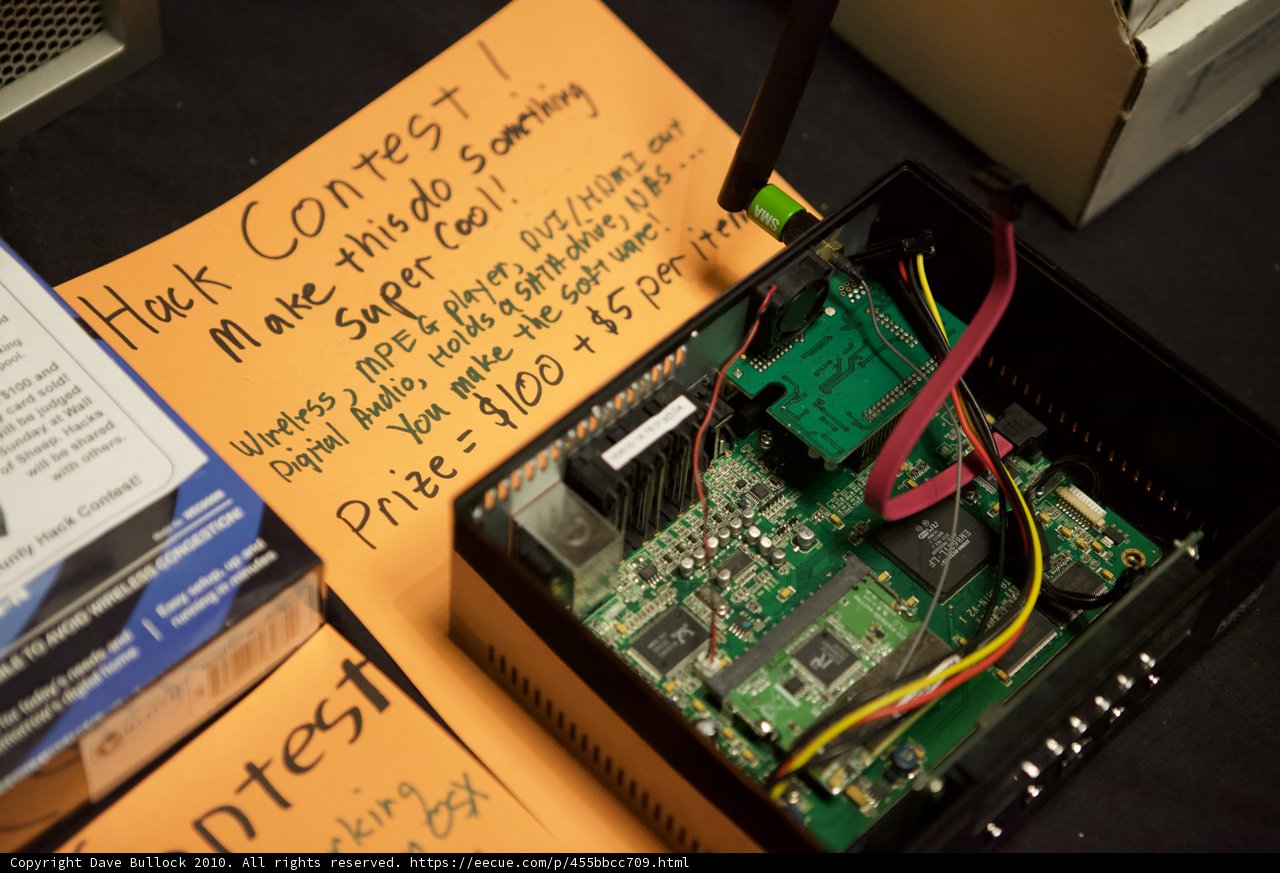 Hack Contest!
Make this do something
super cool!
Wireless, MPEG player, DVI/HDMI out
Digital Audio, Holds a SATA drive, NAS...
You make the software!
Prize = $100 + $5 per item
SMA
$100 and
card sold!
will be judged
Sunday at Wall
of Sheep. Hacks
will be shared
with others.
Hack Contest!
TO AVOID WIRELESS CONGESTION!
for today's needs and
tomorrow's digital home
Easy setup, up and
running in minutes
ontest
rking
OSX
Copyright Dave Bullock 2010. All rights reserved. https://eecue.com/p/455bbcc709.html